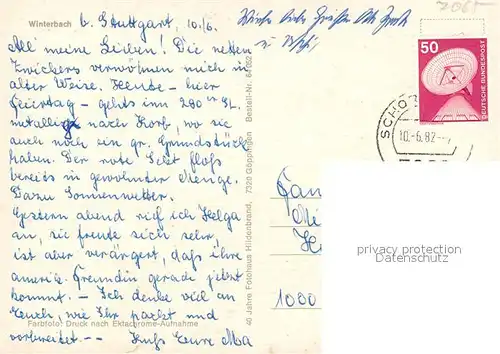 Winterbach b. Stuttgart, 10./6.
All meine Lieben! Die netten
Zwickers verwöhnen mich in
alter Weise. Heute - hier
Feiertag - gehts im 280 SL
metallic nach Korb, wo sie
auch noch ein gr. Grundstück
haben. Der rote Sekt floß
bereits in gewohnter Menge.
Dazu Sonnenwetter.
Gestern abend rief ich Helga
an, sie freute sich sehr,
ist aber verärgert, daß ihre
amerik. Freundin gerade jetzt
kommt. - Ich denke viel an
Euch, wie Ihr packt und
vorbereitet. --
Kuß Eure Ma
Farbfoto: Druck nach Ektachrome-Aufnahme
40 Jahre Fotohaus Hildenbrand, 7320 Göppingen Bestell-Nr. 64/052
liebe Grüße
50
DEUTSCHE BUNDESPOST
SCHO
10.-6.82
Fam
1000
privacy protection
Ansichtskarten-Center.de